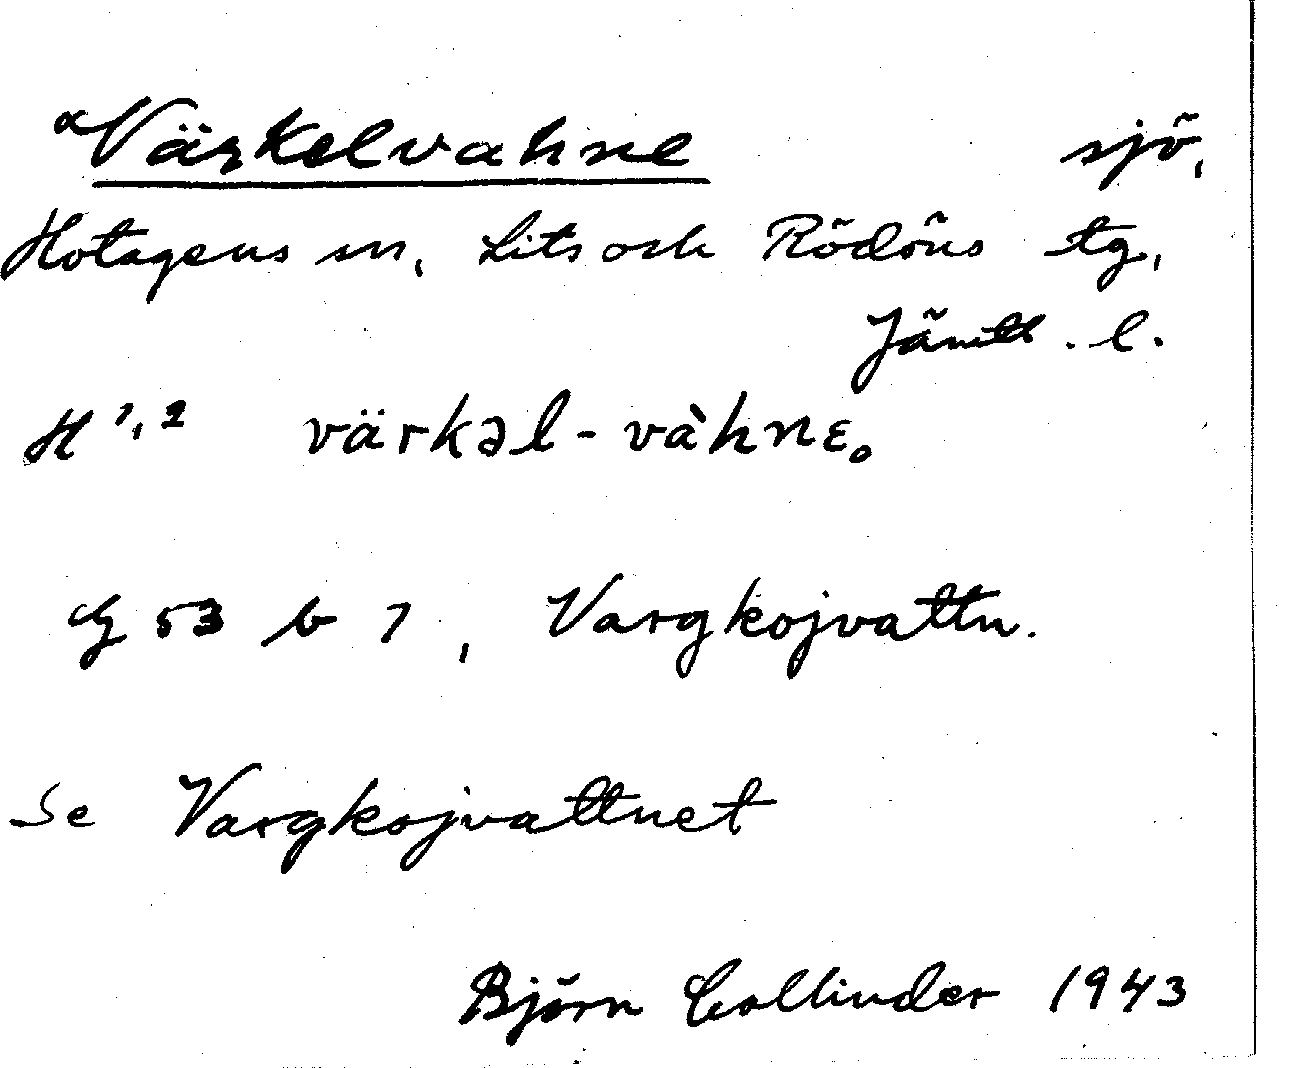 ᵅVärkelvahne sjö,
Hotagens sn, Lits och Rödöns tg,
Jämtl. l.
H ¹,² värkəl-vàhnɛ。
G 53 b 7, Vargkojvattn.
Se Vargkojvattnet
Björn Collinder 1943